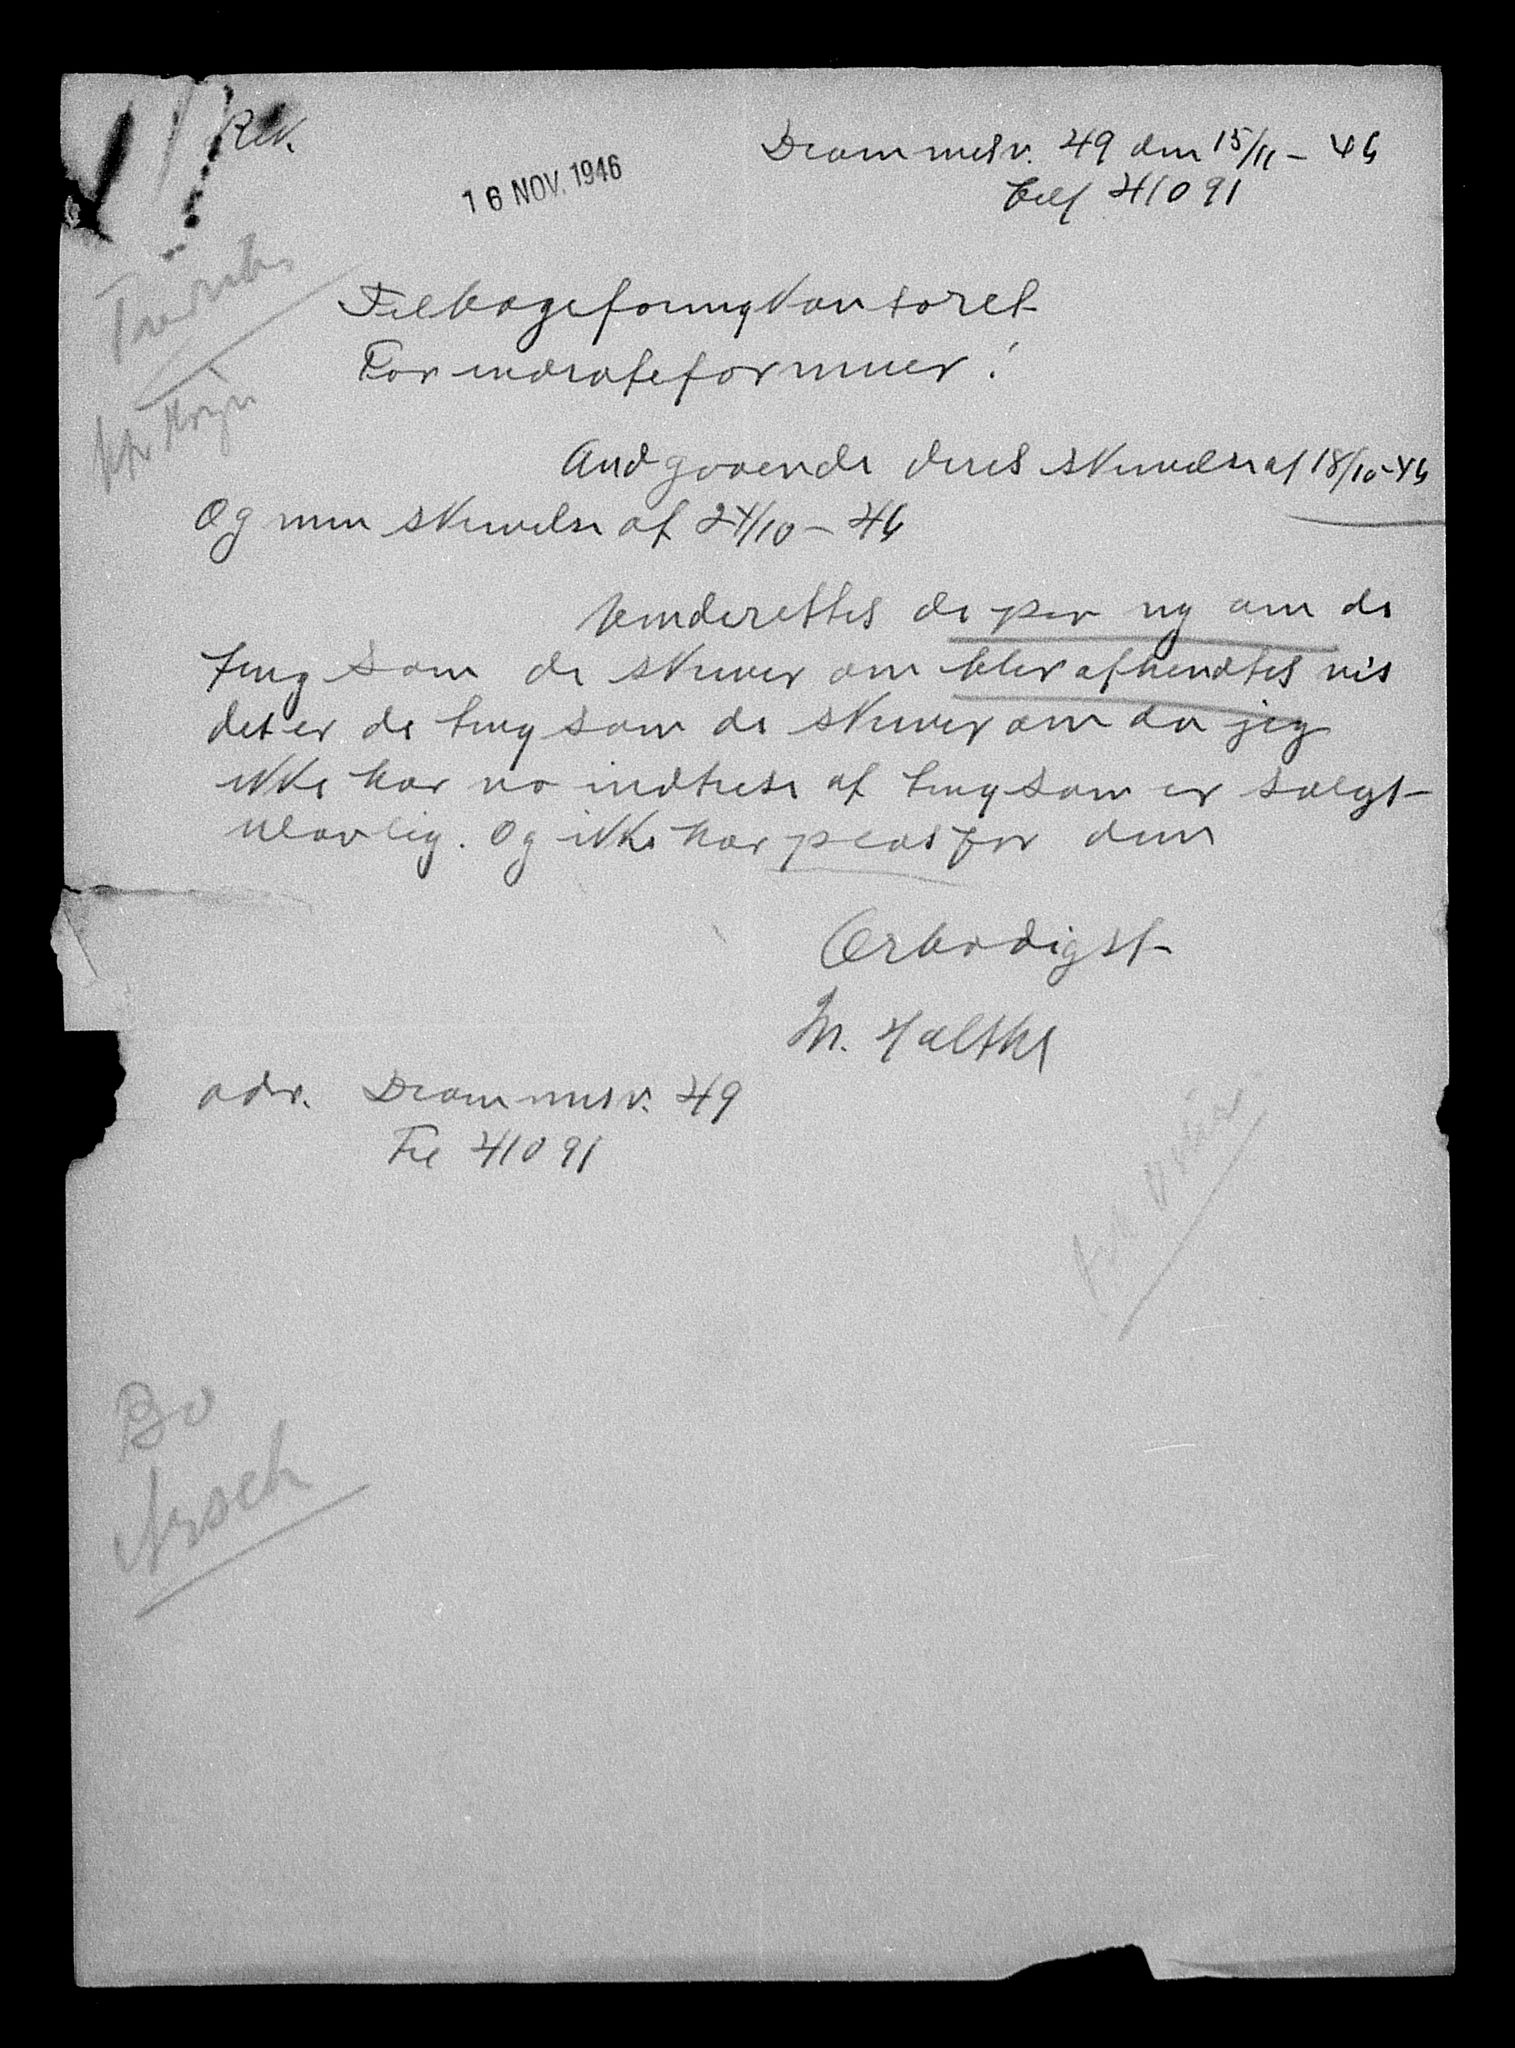 Rek.
Drammesv. 49 den 15/11 - 46
16 NOV. 1946
telf 41091
Tilbageføringkontoret
For indrateformuer!
Andgaaende deres skrivelse af 18/10-46
Og min skrivelse af 24/10 - 46
underettes de per ny om de
ting som de skriver om blir afhendtes vis
det er de ting som de skriver om da jeg
ikke har no indtrese af ting som er solgt
ulovlig. Og ikke har plas for dem
Ærbødigst
M.
adr. Drammesv. 49
Tel 41091
Bo
Arsch